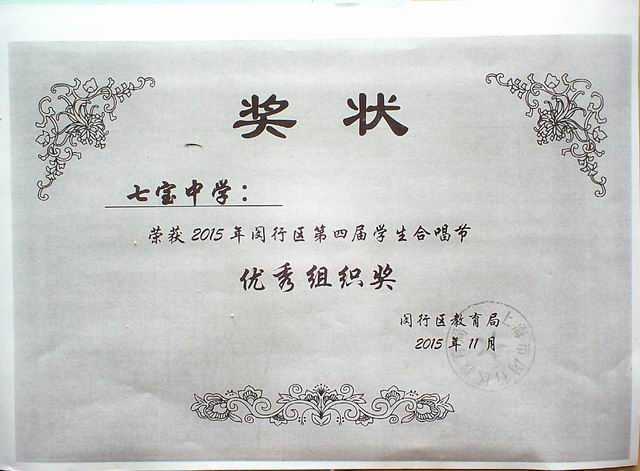 奖状
七宝中学：
荣获2015年闵行区第四届学生合唱节
优秀组织奖
闵行区教育局
2015年11月